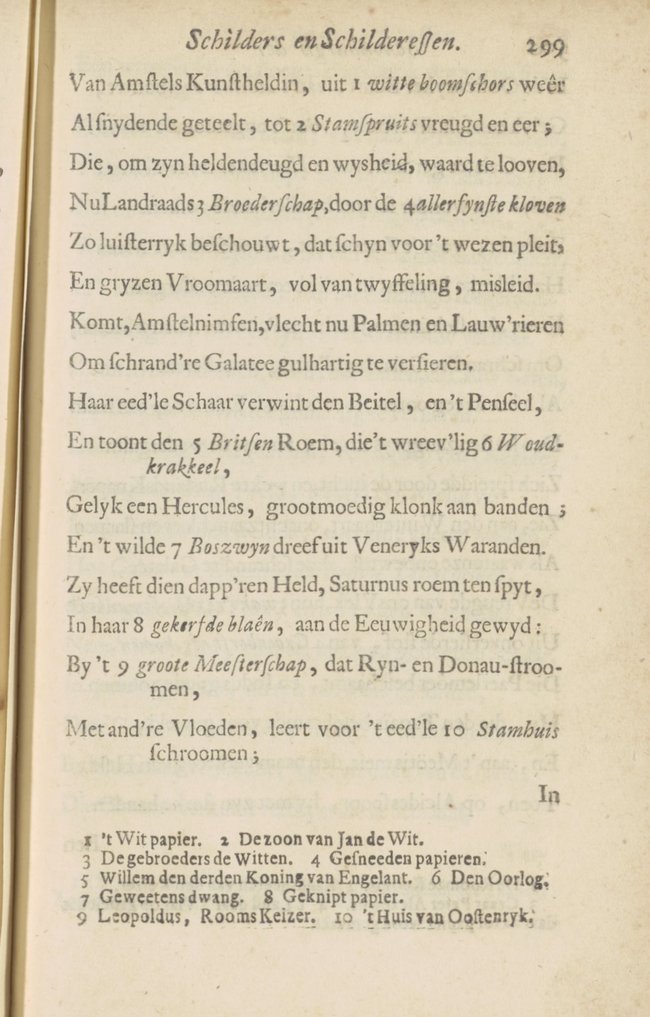 Schilders en Schildereſſen. 299
Van Amſtels Kunſtheldin, uit 1 witte boomſchors weêr
Al ſnydende geteelt, tot 2 Stamſpruits vreugd en eer;
Die, om zyn heldendeugd en wysheid, waard te looven,
Nu Landraads 3 Broederſchap, door de 4 allerfynſte kloven
Zo luiſterryk beſchouwt, dat ſchyn voor 't wezen pleit,
En gryzen Vroomaart, vol van twyffeling, misleid.
Komt, Amſtelnimfen, vlecht nu Palmen en Lauw'rieren
Om ſchrand're Galatee gulhartig te verſieren.
Haar eed'le Schaar verwint den Beitel, en 't Penſeel,
En toont den 5 Britſen Roem, die 't wreev'lig 6 Woud-
krakkeel,
Gelyk een Hercules, grootmoedig klonk aan banden;
En 't wilde 7 Boszwyn dreef uit Veneryks Waranden.
Zy heeft dien dapp'ren Held, Saturnus roem ten ſpyt,
In haar 8 gekerfde blaên, aan de Eeuwigheid gewyd:
By 't 9 groote Meeſterſchap, dat Ryn- en Donau-ſtroo-
men,
Met and're Vloeden, leert voor 't eed'le 10 Stamhuis
ſchroomen;
In
1 't Wit papier. 2 De zoon van Jan de Wit.
3 De gebroeders de Witten. 4 Geſneeden papieren.
5 Willem den derden Koning van Engelant. 6 Den Oorlog.
7 Geweetens dwang. 8 Geknipt papier.
9 Leopoldus, Rooms Keizer. 10 't Huis van Ooſtenryk.